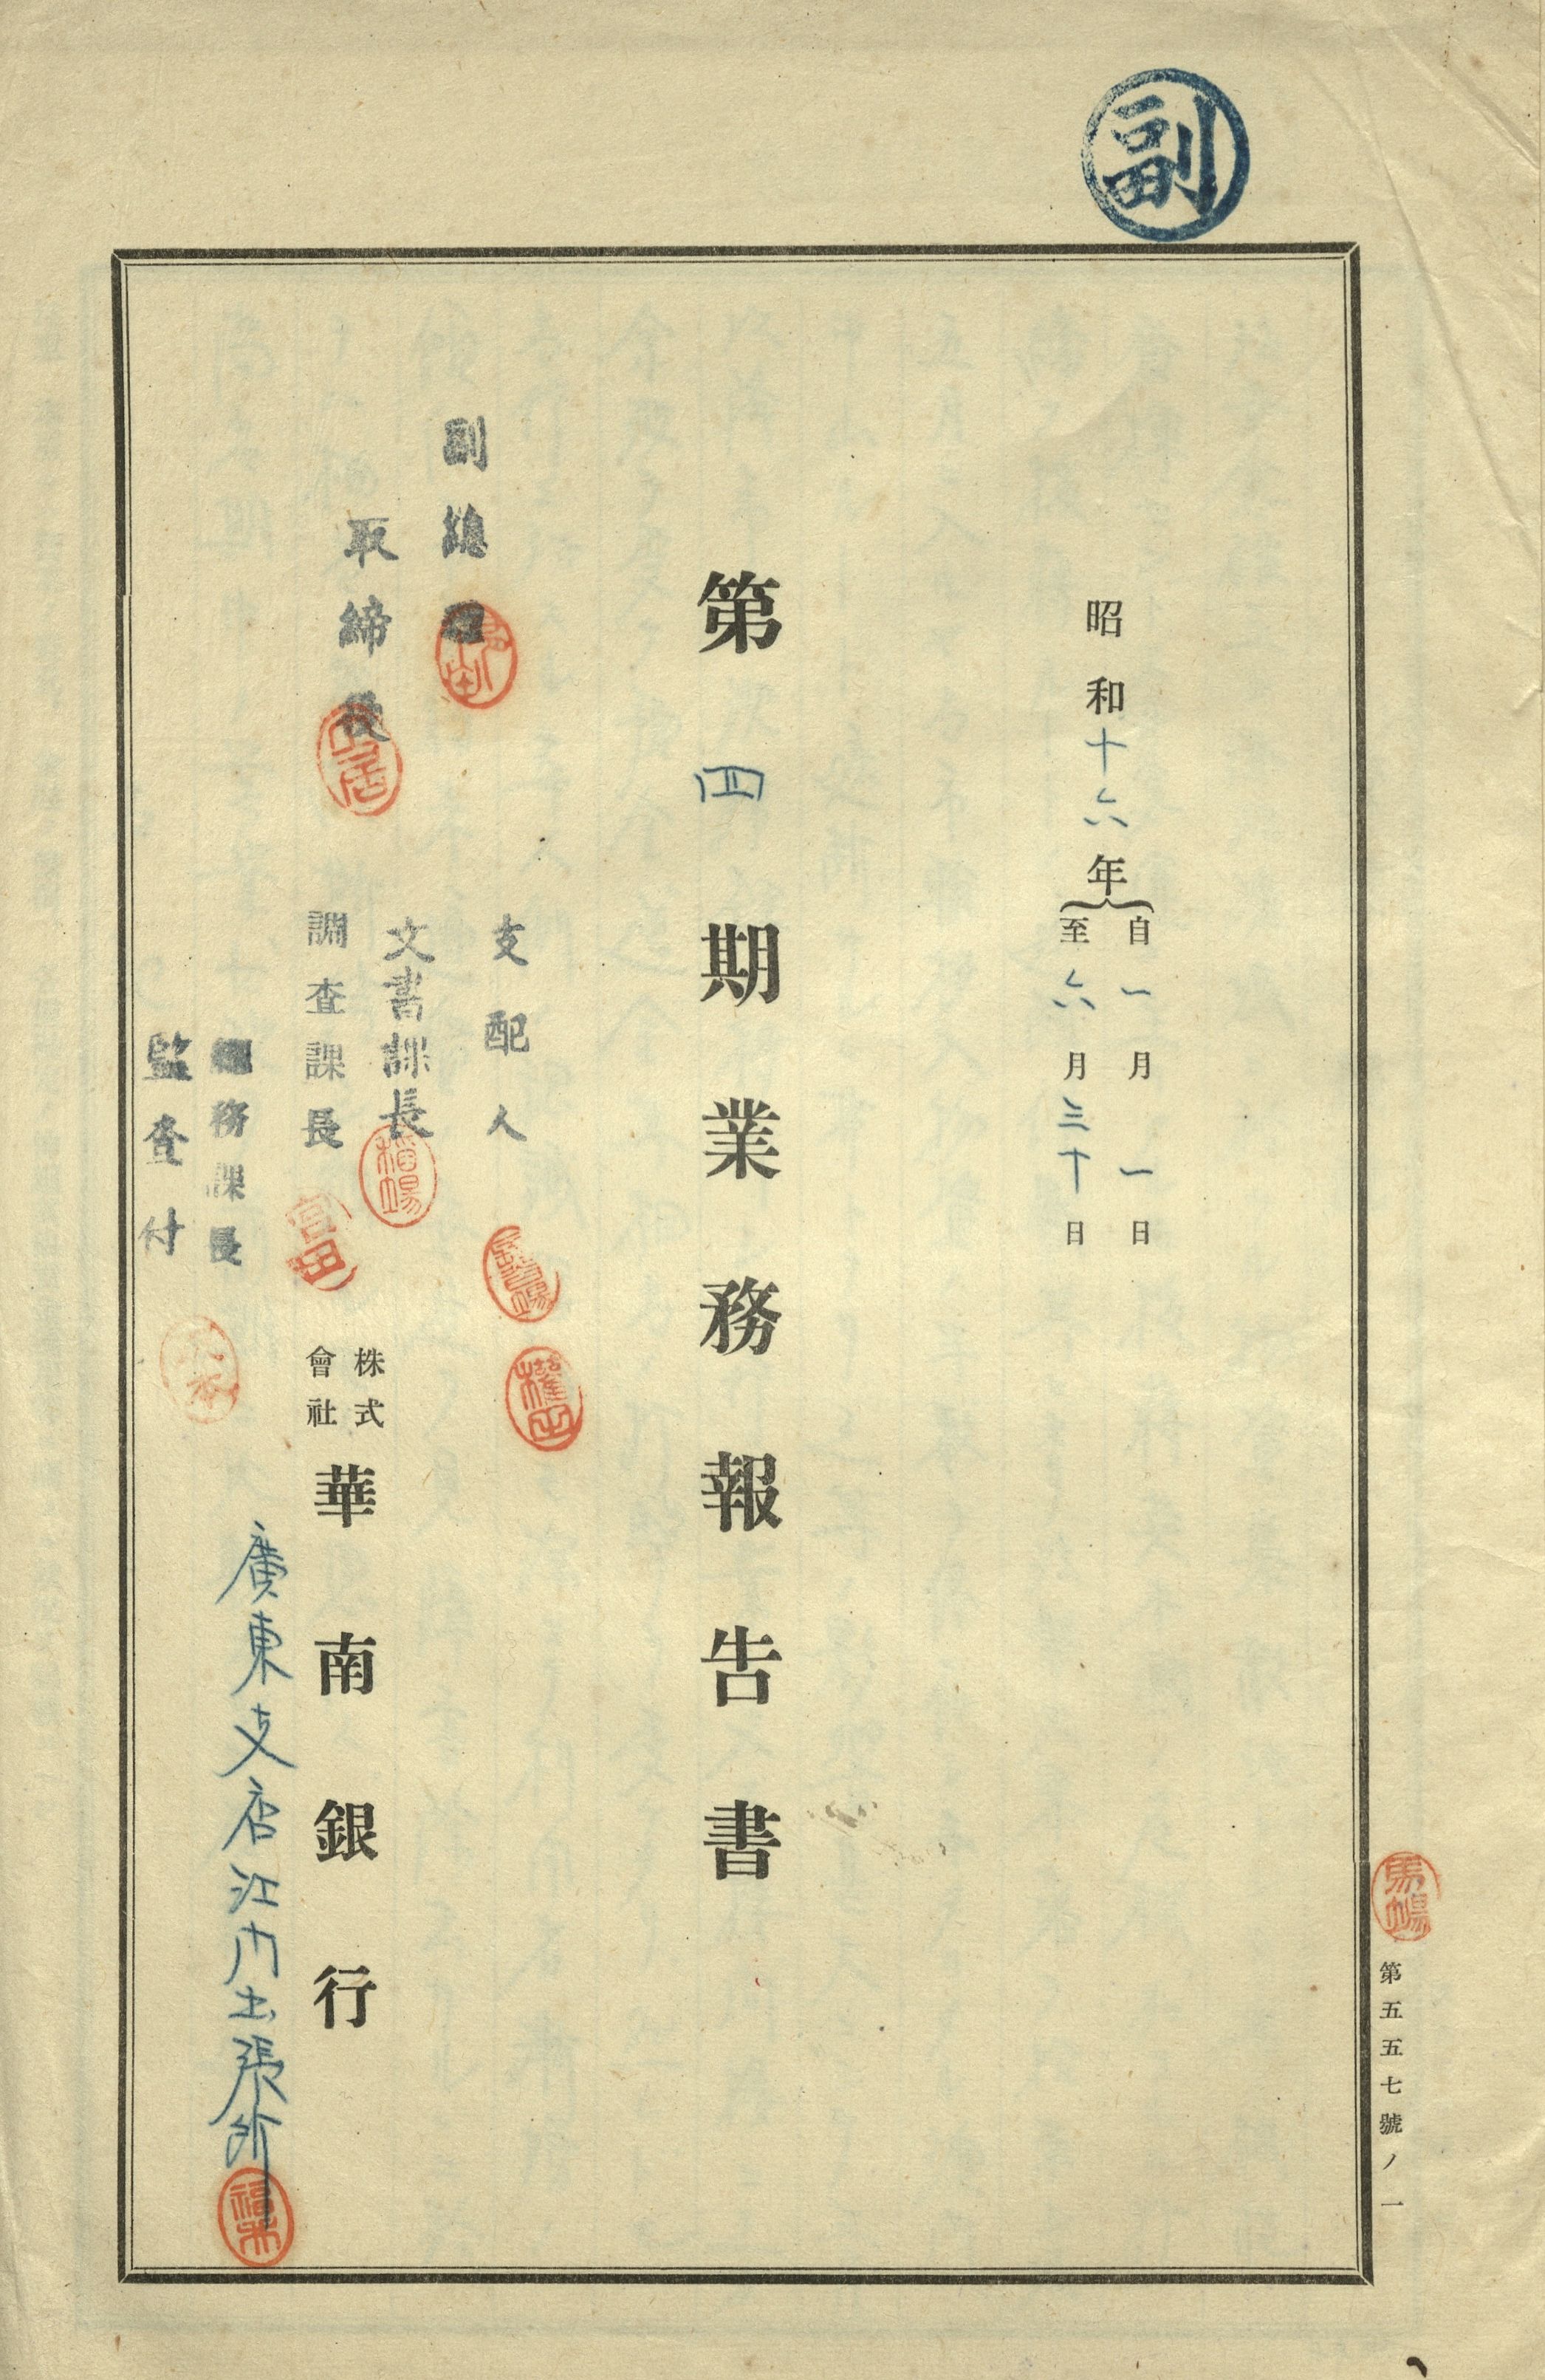 副
昭和十六年
自一月一日
至六月三十日
第四期業務報告書
副總理
取締役
支配人
文書課長
調查課長
總務課長
監查付
株式
會社
華南銀行
廣東支店江門出張所
第五五七號ノ一